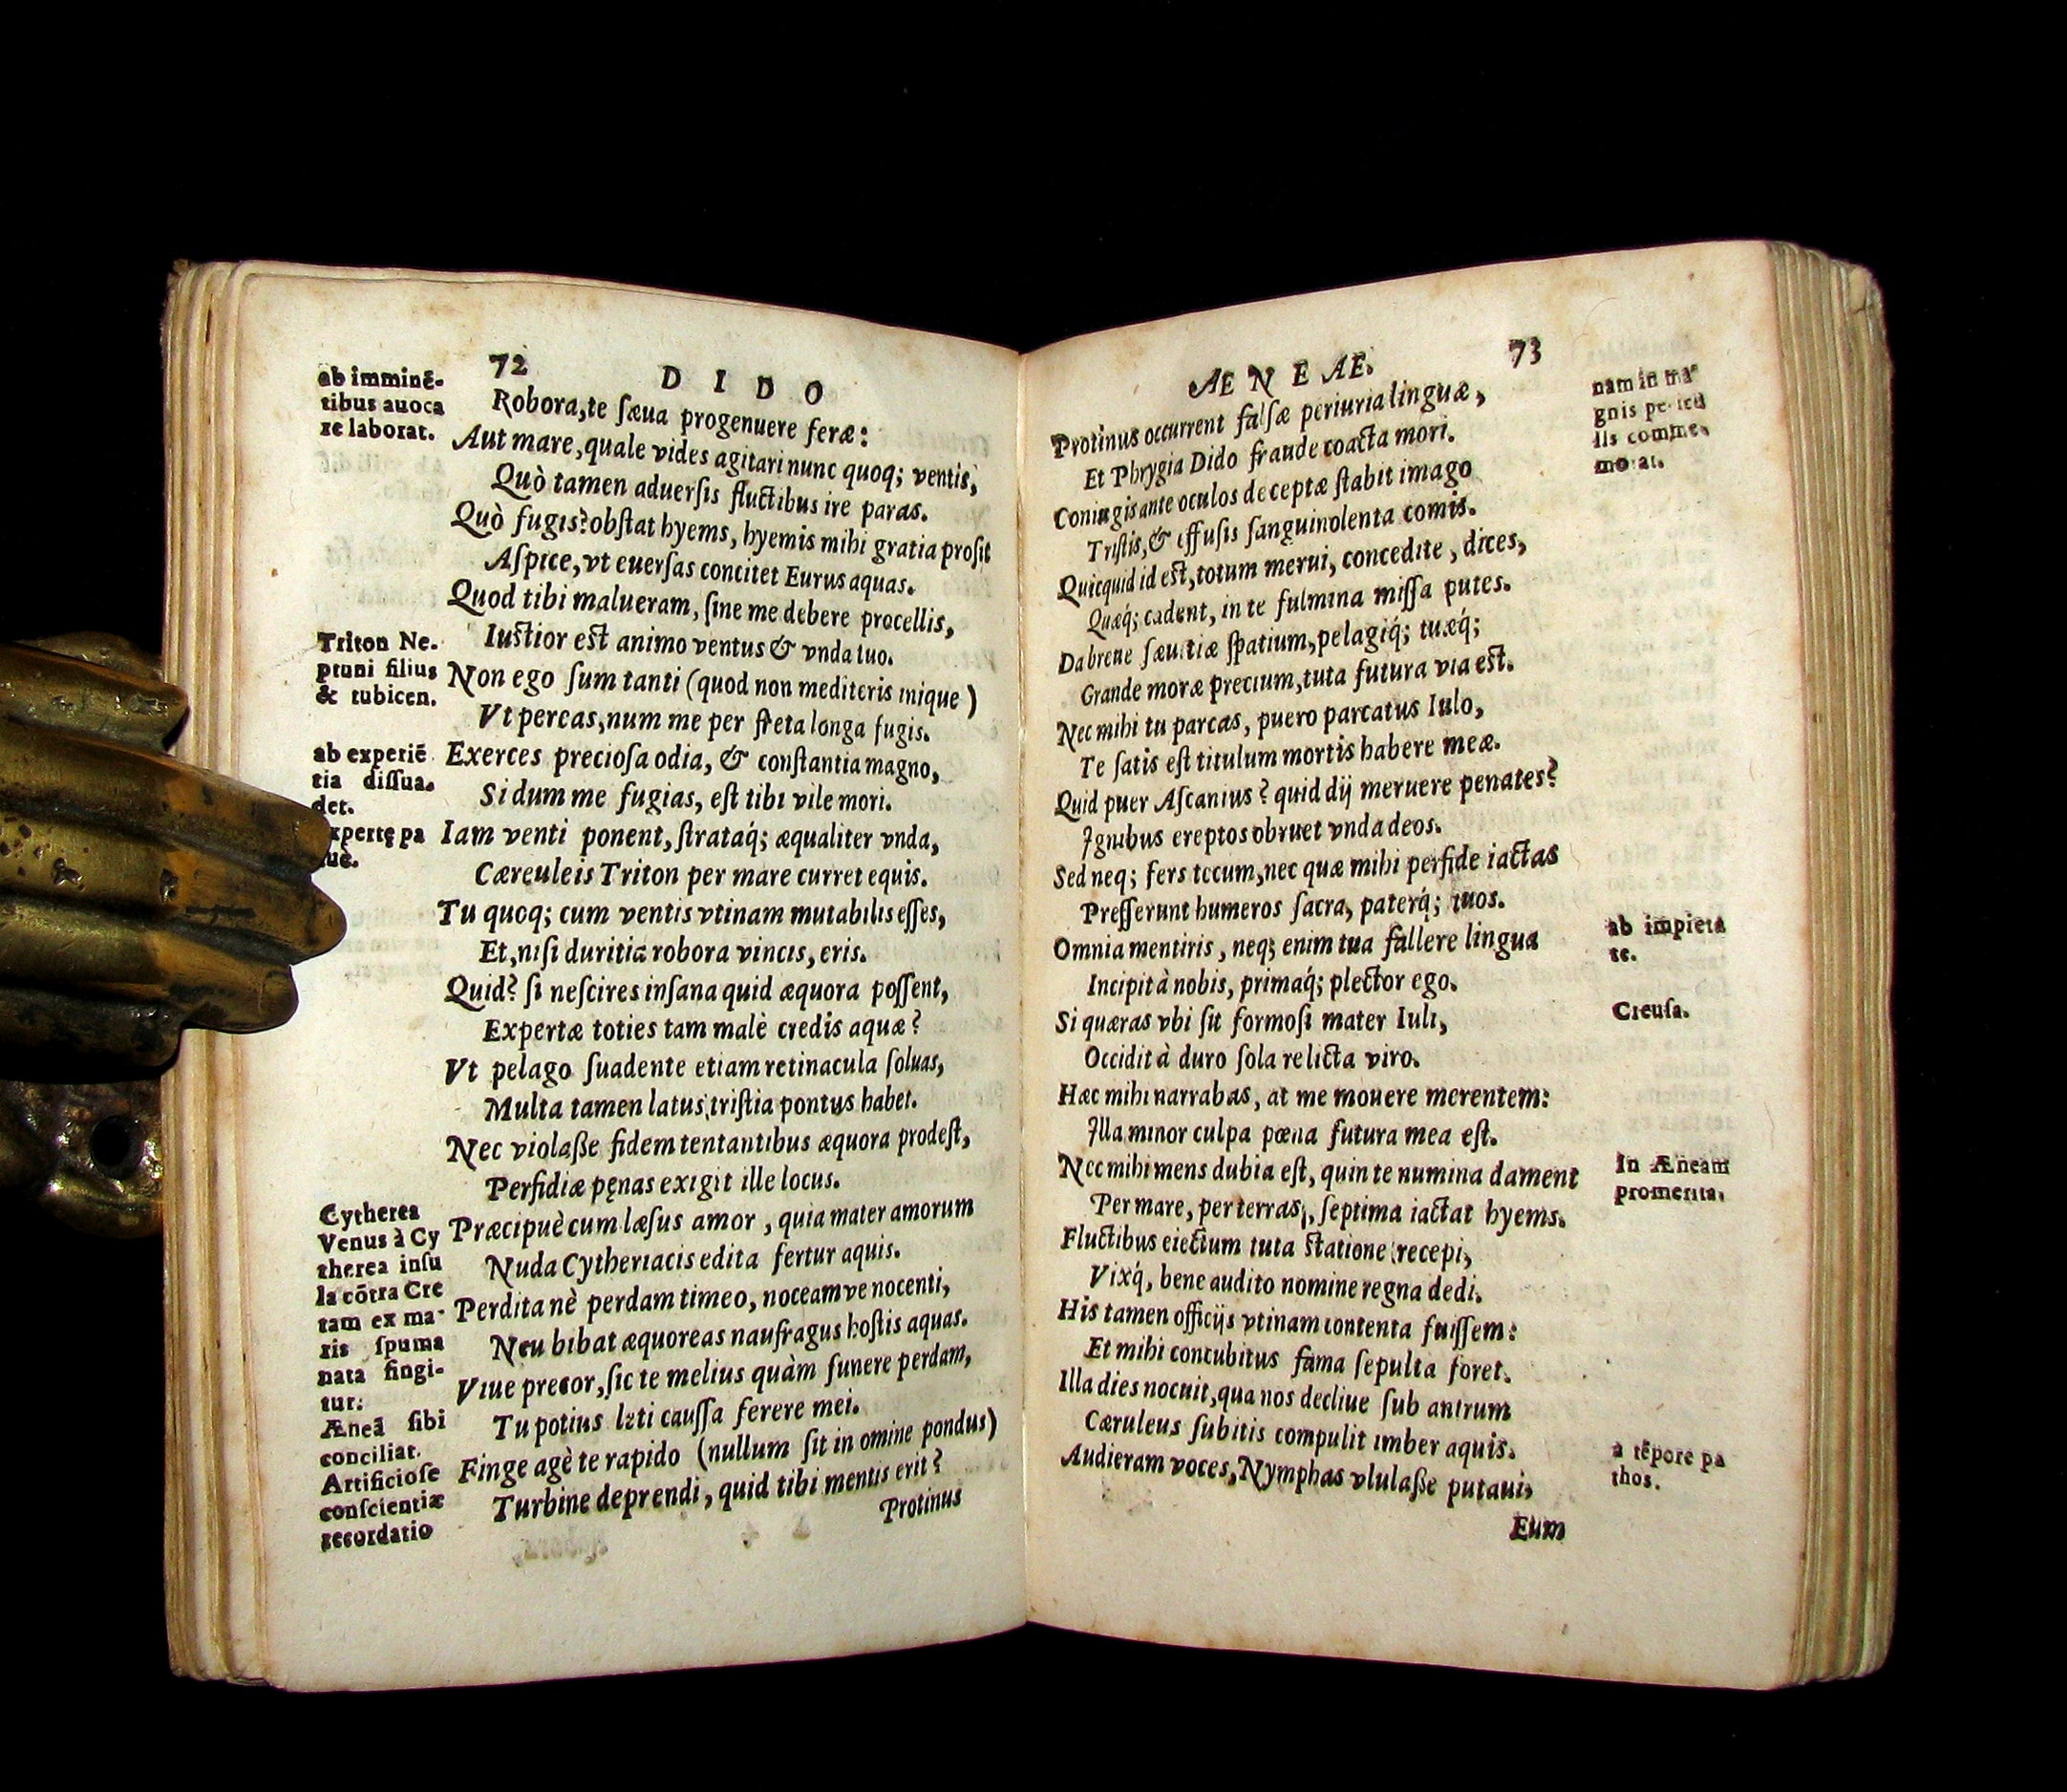 72
DIDO
Robora, te ſæua progenuere feræ:
Aut mare, quale vides agitari nunc quoq; ventis,
Quò tamen aduerſis fluctibus ire paras.
Quò fugis? obſtat hyems, hyemis mihi gratia proſit
Aſpice, vt euerſas concitet Eurus aquas.
Quod tibi malueram, ſine me debere procellis,
Iuſtior eſt animo ventus & vnda tuo.
Non ego ſum tanti (quod non mediteris inique)
Vt pereas, num me per freta longa fugis.
Exerces precioſa odia, & conſtantia magno,
Si dum me fugias, eſt tibi vile mori.
Iam venti ponent, ſtrataq́; æqualiter vnda,
Cæreuleis Triton per mare curret equis.
Tu quoq; cum ventis vtinam mutabilis eſſes,
Et, niſi duritia robora vincis, eris.
Quid? ſi neſcires inſana quid æquora poſſent,
Expertæ toties tam malè credis aquæ?
Vt pelago ſuadente etiam retinacula ſoluas,
Multa tamen latus triſtia pontus habet.
Nec violaſſe fidem tentantibus æquora prodeſt,
Perfidiæ pęnas exigit ille locus.
Præcipuè cum læſus amor, quia mater amorum
Nuda Cytheriacis edita fertur aquis.
Perdita nè perdam timeo, noceamve nocenti,
Neu bibat æquoreas naufragus hoſtis aquas.
Viue precor, ſic te melius quàm funere perdam,
Tu potius leti cauſſa ferere mei.
Finge agè te rapido (nullum ſit in omine pondus)
Turbine deprendi, quid tibi mentis erit?
Protinus
ab imminē-
tibus auoca
re laborat.
Triton Ne-
ptuni filius
& tubicen.
ab experiē
tia diſſua-
det.
pa
Cytherea
Venus à Cy
therea inſu
la cōtra Cre
tam ex ma-
ris ſpuma
nata fingi-
tur.
Æneā ſibi
conciliat.
Artificioſe
conſcientiæ
recordatio
73
AENEAE.
Protinus occurrent falſæ periuria linguæ,
Et Phrygia Dido fraude coacta mori.
Coniugis ante oculos deceptæ ſtabit imago
Triſtis, & effuſis ſanguinolenta comis.
Quicquid id eſt, totum merui, concedite, dices,
Quæq́; cadent, in te fulmina miſſa putes.
Da breue ſæuitiæ ſpatium, pelagiq́; tuæq́;
Grande moræ precium, tuta futura via eſt.
Nec mihi tu parcas, puero parcatus Iulo,
Te ſatis eſt titulum mortis habere meæ.
Quid puer Aſcanius? quid dij meruere penates?
Ignibus ereptos obruet vnda deos.
Sed neq; fers tecum, nec quæ mihi perfide iactas
Preſſerunt humeros ſacra, paterq́; tuos.
Omnia mentiris, neq; enim tua fallere lingua
Incipit à nobis, primaq́; plector ego.
Si quæras vbi ſit formoſi mater Iuli,
Occidit à duro ſola relicta viro.
Hæc mihi narrabas, at me mouere merentem:
Illa minor culpa pœna futura mea eſt.
Nec mihi mens dubia eſt, quin te numina dament
Per mare, per terras, ſeptima iactat hyems.
Fluctibus eiectum tuta ſtatione recepi,
Vixq́, bene audito nomine regna dedi.
His tamen officijs vtinam contenta fuiſſem:
Et mihi concubitus fama ſepulta foret.
Illa dies nocuit, qua nos decliue ſub antrum
Cæruleus ſubitis compulit imber aquis.
Audieram voces, Nymphas vlulaſſe putaui,
Eum
nam in ma-
gnis pericu
lis comme-
morat.
ab impieta
te.
Creuſa.
In Æneam
promerita.
à tēpore pa
thos.